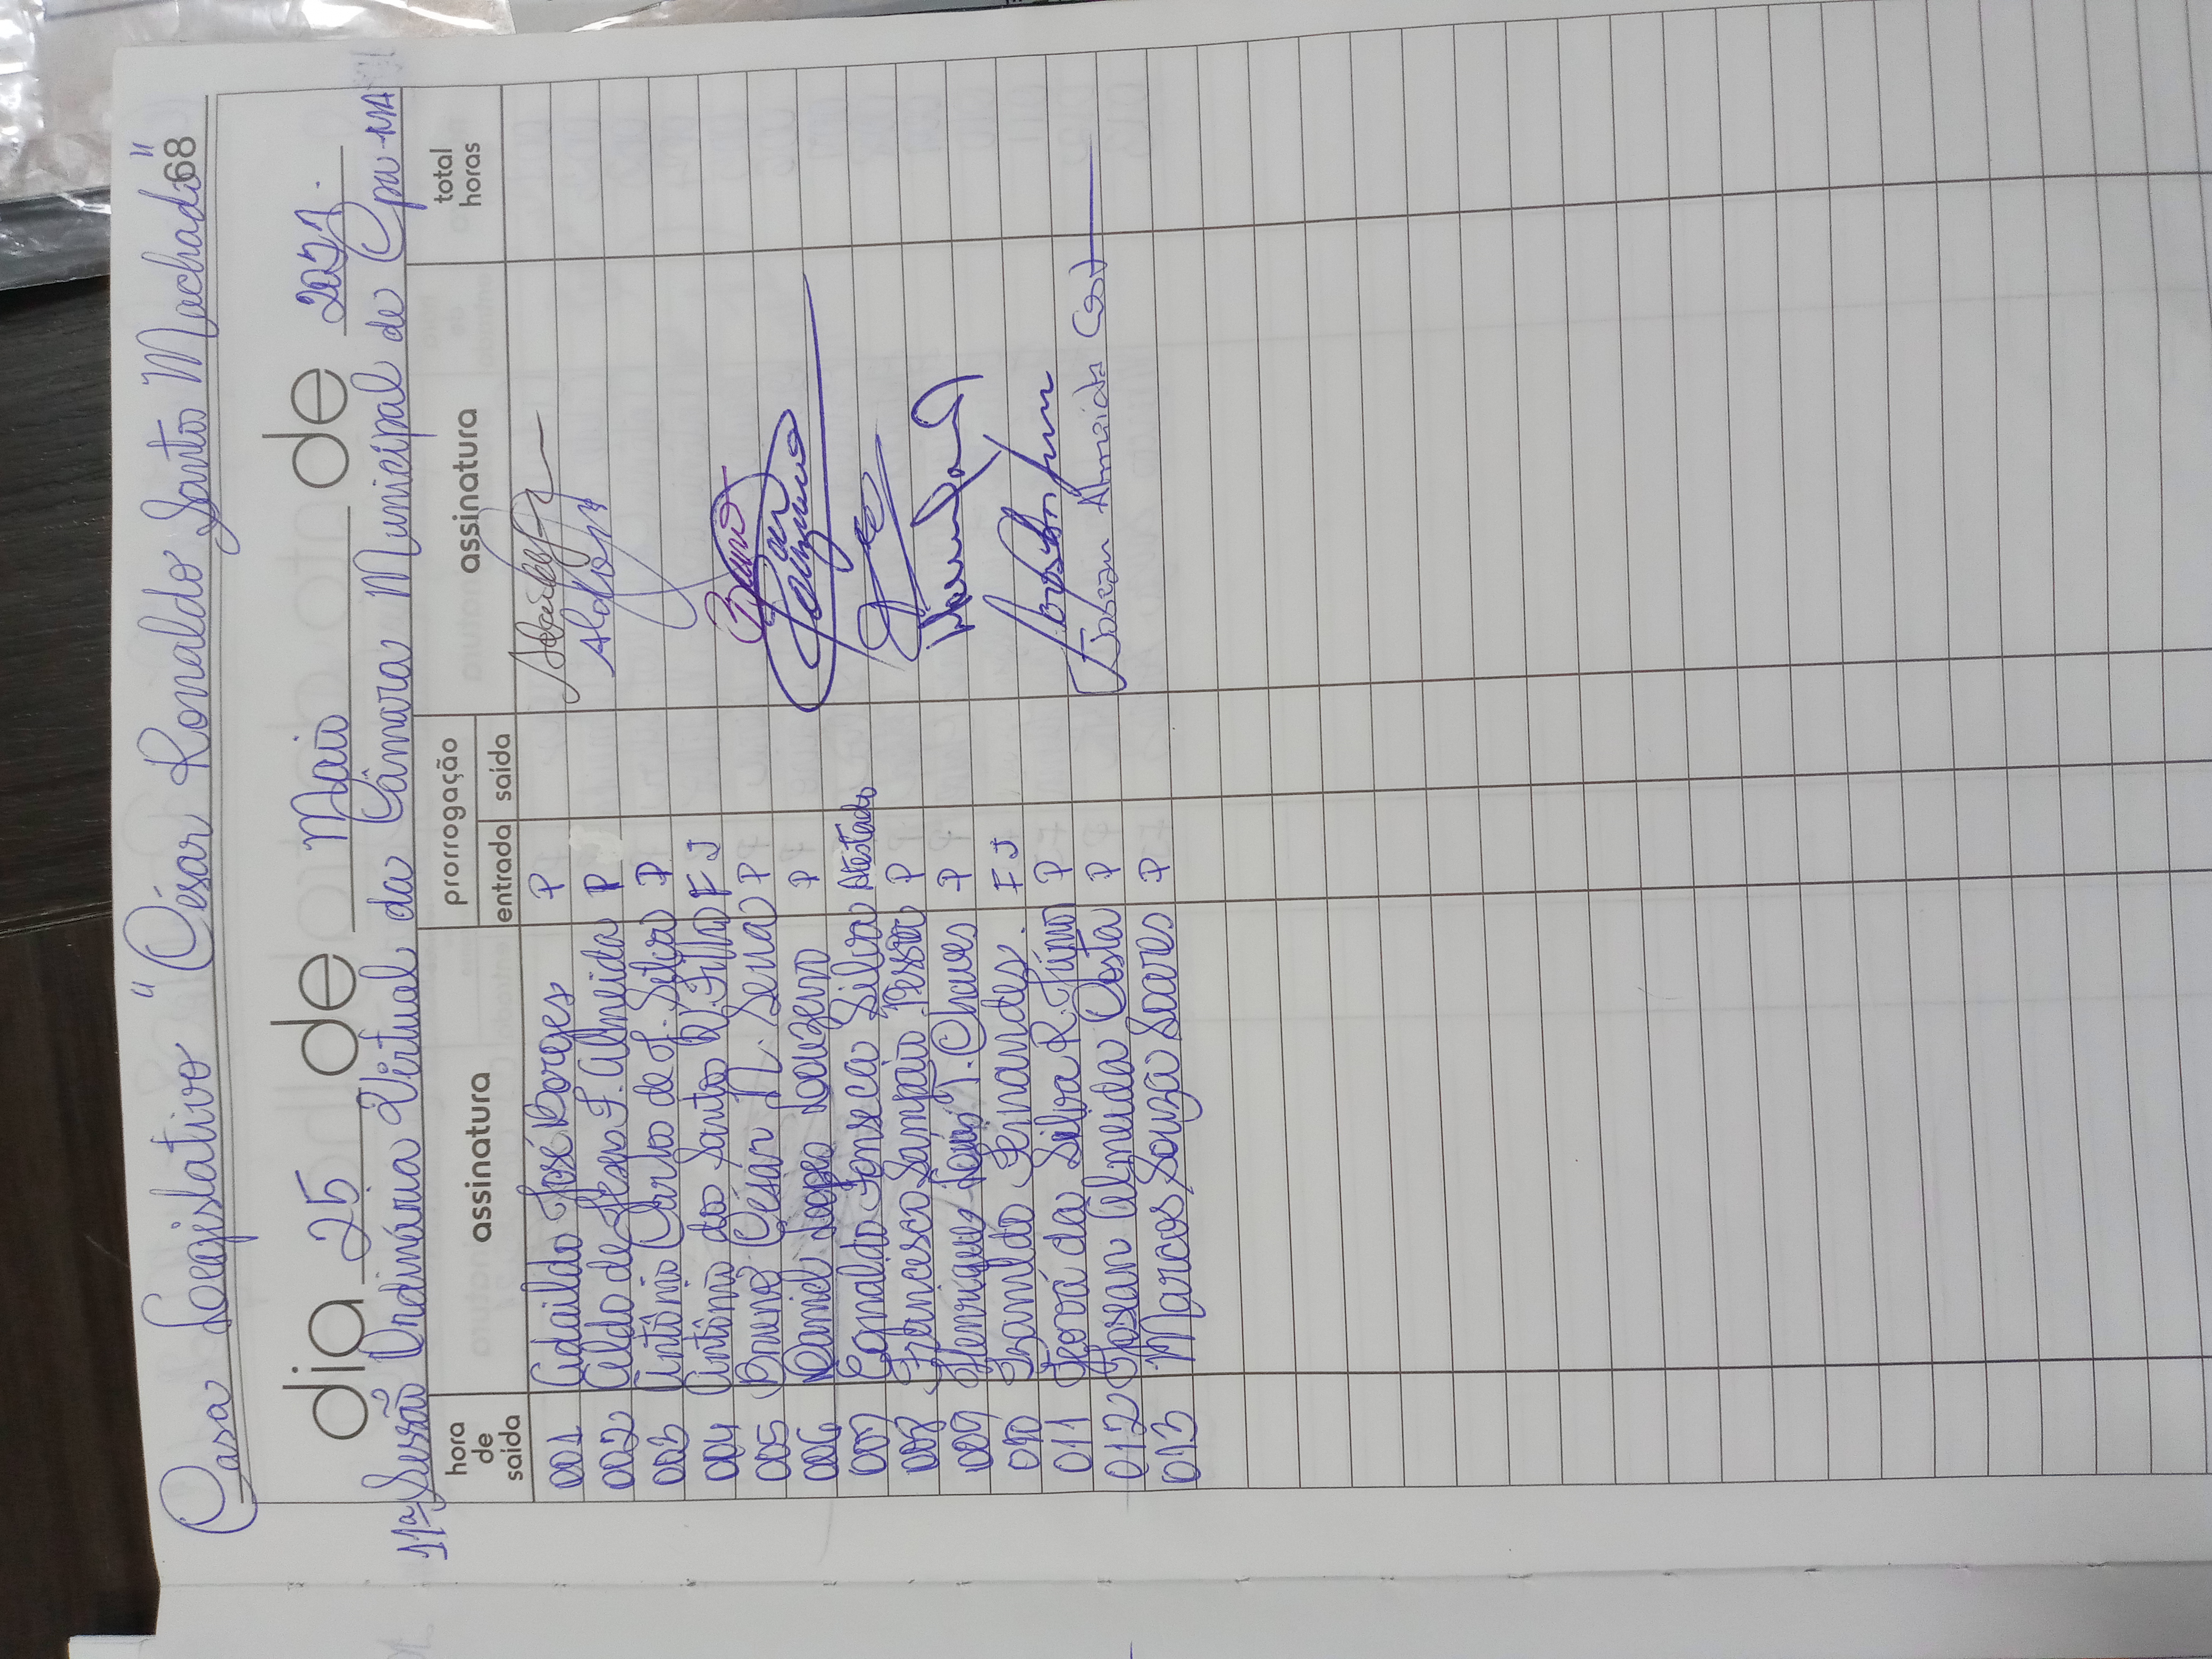 Casa Legislativo "César Ronaldo Santo Machado"
68
dia 25 de Maio de 2021.
11ª Sessão Ordinária Virtual da Câmara Municipal de Cpu-MA
hora de saída assinatura prorrogação entrada saída assinatura total horas
001 Adaildo José Borges P
002 Aldo de Jesen F. Almeida P Aldo
003 Antônio Carlo de J. Silva P
004 Antônio do Santo Filho FJ
005 Bruno César N. Sena P Bruno
006 Daniel Lopes P
007 Ednaldo Fonseca Silva Atestado
008 Francisco Sampaio P
009 Henrique T. Chaves P
010 Iranildo Fernandes. FJ
011 Jeová da Silva R. P
012 Josean Almeida Costa P Josean Almeida Cost
013 Marcos Souza Soares P